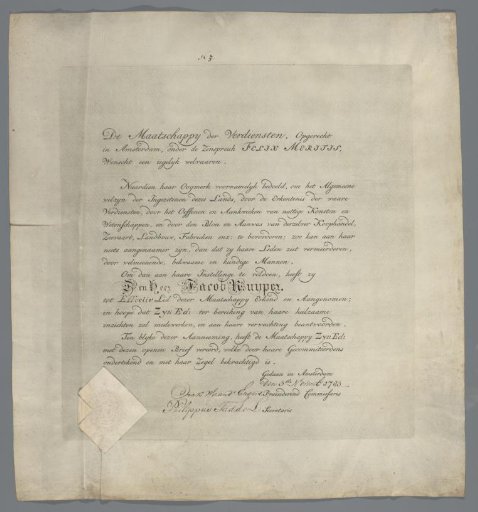 De Maatschappy der Verdiensten, Opgerecht
in Amsterdam, onder de Zinspreuk FELIX MERITIS,
Wenscht een iegelyk velvaaren.
Naardien haar Oogmerk voornaamlyk bedoeld, om het Algemeene
velzyn der Ingezetenen deezes Lands, door de Erkentenis der waare
Verdiensten, door het Oeffenen en Aankweeken van nuttige Konsten en
Wetenschappen, en door den Bloei en Aanwas van derzelver Koophandel,
Zeevaart, Landbouw, Fabrieken enz: te bevorderen; zoo kan aan haar
niets aangenaamer zyn, dan dat zy haare Leden ziet vermeerderen,
door velmeenende, bekwaame en kundige Mannen.
Om dan aan haare Instellinge te voldoen, heeft zy
Den Heer Jacob Kuyper.
tot Lid dezer Maatschappy Erkend en Aangenomen;
in hoope dat Zyn Ed: ter bereiking van haare heilzaame
inzichten zal medewerken, en aan haare verwachting beantwoorden.
Ten blyke dezer Aanneeming, heeft de Maatschappy Zyn Ed:
met deezen openen Brief vereerd, welke door haare Gecommitteerdens
ondertekend en met haar Zegel bekrachtigd is.
Gedaan in Amsterdam
Den 5de Novemb 1783
Commissaris
Philippus Secretaris